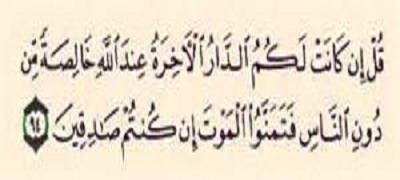 قُلْ إِن كَانَتْ لَكُمُ ٱلدَّارُ ٱلْأَخِرَةُ عِندَ ٱللَّهِ خَالِصَةً مِّن
دُونِ ٱلنَّاسِ فَتَمَنَّوُا۟ ٱلْمَوْتَ إِن كُنتُمْ صَٰدِقِينَ ٩٤